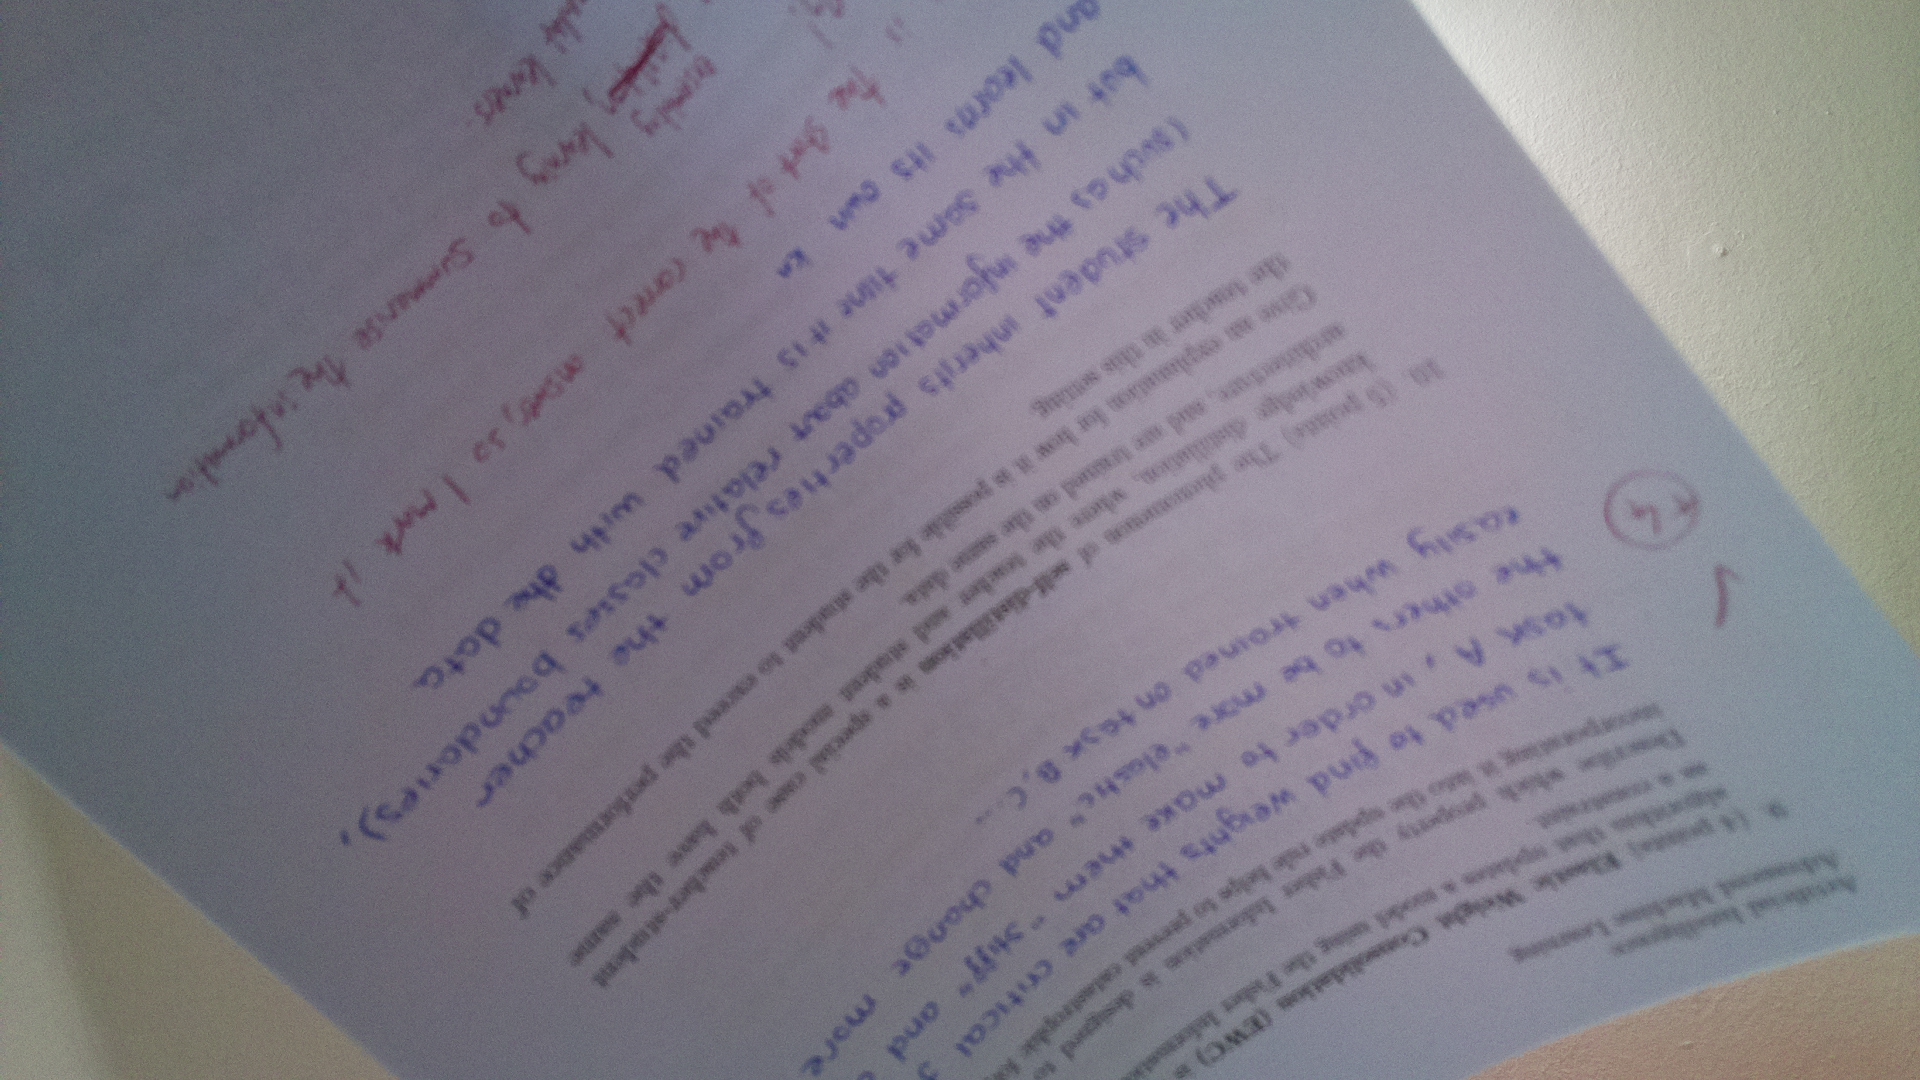 Artificial Intelligence
Advanced Machine Learning
9. (4 points) Elastic Weight Consolidation (EWC) is
algorithm that updates a model using the Fisher Information
as a constraint.
Describe which property the Fisher Information is designed to
incorporating it into the update rule helps to prevent catastrophic
It is used to find weights that are critical
task A, in order to make them "stiff" and
the others to be more "elastic" and change more
easily when trained on task B, C...
10. (5 points) The phenomenon of self-distillation is a special case of teacher-student
knowledge distillation, where the teacher and student models both have the same
architecture, and are trained on the same data.
Give an explanation for how it is possible for the student to exceed the performance of
the teacher in this setting.
The student inherits properties from the teacher
(such as the information about relative classes boundaries),
but in the same time it is trained with the data
and learns its own
the gist of the correct answer, so I mark it
to summarise the information